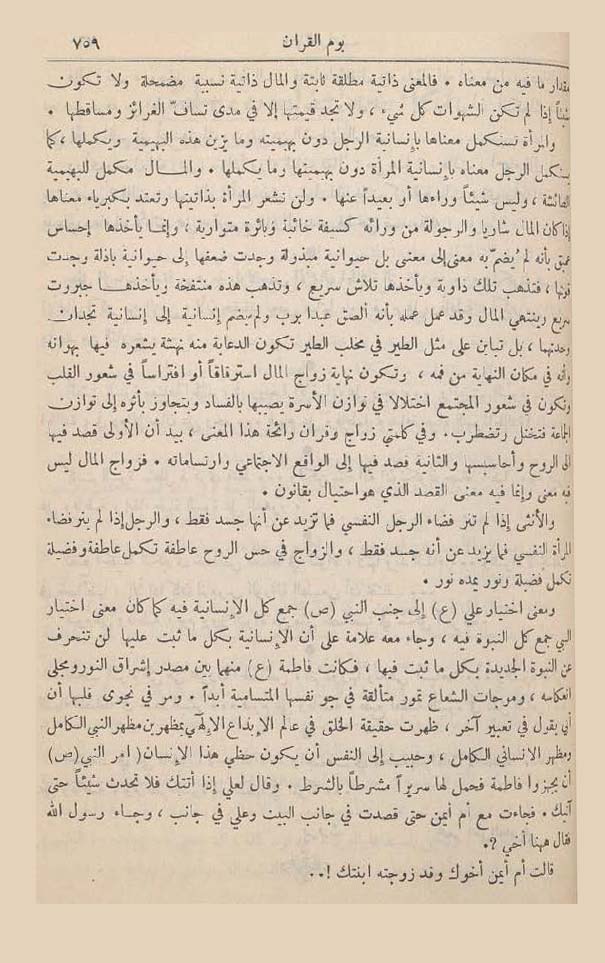 يوم القران ٧٥٩
مقدار ما فيه من معناه . فالمعنى ذاتية مطلقة ثابتة والمال ذاتية نسبية مضمحلة ولا تكون
شيئاً إذا لم تكن الشهوات كل شيء ، ولا تجد قيمتها إلا في مدى تسافّ الغرائز ومساقطها .
والمرأة تستكمل معناها بإنسانية الرجل دون بهيميته وما يزين هذه البهيمية ويكملها ، كما
يستكمل الرجل معناه بإنسانية المرأة دون بهيميتها وما يكملها . والمال مكمل للبهيمية
الطائشة ، وليس شيئاً وراءها أو بعيداً عنها . ولن تشعر المرأة بذاتيتها وتعتد بكبرياء معناها
إذا كان المال شاريا والرجولة من ورائه كسيفة خائبة وبائرة متوارية ، وإنما يأخذها إحساس
عميق بأنه لم يُضمّ به معنى إلى معنى بل حيوانية مبذولة وجدت ضعفها إلى حيوانية باذلة وجدت
قوتها ، فتذهب تلك ذاوية ويأخذها تلاش سريع ، وتذهب هذه منتفخة ويأخذها جبروت
سريع وينتهي المال وقد عمل عمله بأنه ألصق عبدا برب ولم يضم إنسانية إلى إنسانية تجدان
وحدتهما ، بل تباين على مثل الطير في مخلب الطير تكون الدعابة منه نهشة يشعره فيها بهوانه
وأنه في مكان النهاية من فمه ، وتكون نهاية زواج المال استرقاقاً أو افتراساً في شعور القلب
وتكون في شعور المجتمع اختلالا في توازن الأسرة يصيبها بالفساد ويتجاوز بأثره إلى توازن
الجماعة فتختل وتضطرب . وفي كلمتي زواج وقران رائحة هذا المعنى ، بيد أن الأولى قصد فيها
الى الروح وأحاسيسها والثانية قصد فيها إلى الواقع الاجتماعي وارتساماته . فزواج المال ليس
فيه معنى وإنما فيه معنى القصد الذي هو احتيال بقانون .
والأنثى إذا لم تنر فضاء الرجل النفسي فما تزيد عن أنها جسد فقط ، والرجل إذا لم ينر فضاء
المرأة النفسي فما يزيد عن أنه جسد فقط ، والزواج في حس الروح عاطفة تكمل عاطفة وفضيلة
تكمل فضيلة ونور يمده نور .
ومعنى اختيار علي (ع) إلى جنب النبي (ص) جمع كل الإنسانية فيه كما كان معنى اختيار
النبي جمع كل النبوة فيه ، وجاء معه علامة على أن الإنسانية بكل ما ثبت عليها لن تنحرف
عن النبوة الجديدة بكل ما ثبت فيها ، فكانت فاطمة (ع) منهما بين مصدر إشراق النور ومجلى
انعكاسه ، وموجات الشعاع تمور متألقة في جو نفسها المتسامية أبداً . ومر في نجوى قلبها أن
أبي يقول في تعبير آخر ، ظهرت حقيقة الخلق في عالم الإبداع الإلهي بمظهرين مظهر النبي الكامل
ومظهر الإنساني الكامل ، وحبيب إلى النفس أن يكون حظي هذا الإنسان ( امر النبي (ص)
أن يجهزوا فاطمة فحمل لها سريراً مشرطاً بالشرط . وقال لعلي إذا أتتك فلا تحدث شيئاً حتى
آتيك . فجاءت مع أم أيمن حتى قعدت في جانب البيت وعلي في جانب ، وجاء رسول الله
فقال ههنا أخي ؟ .
قالت أم أيمن أخوك وقد زوجته ابنتك ! ..